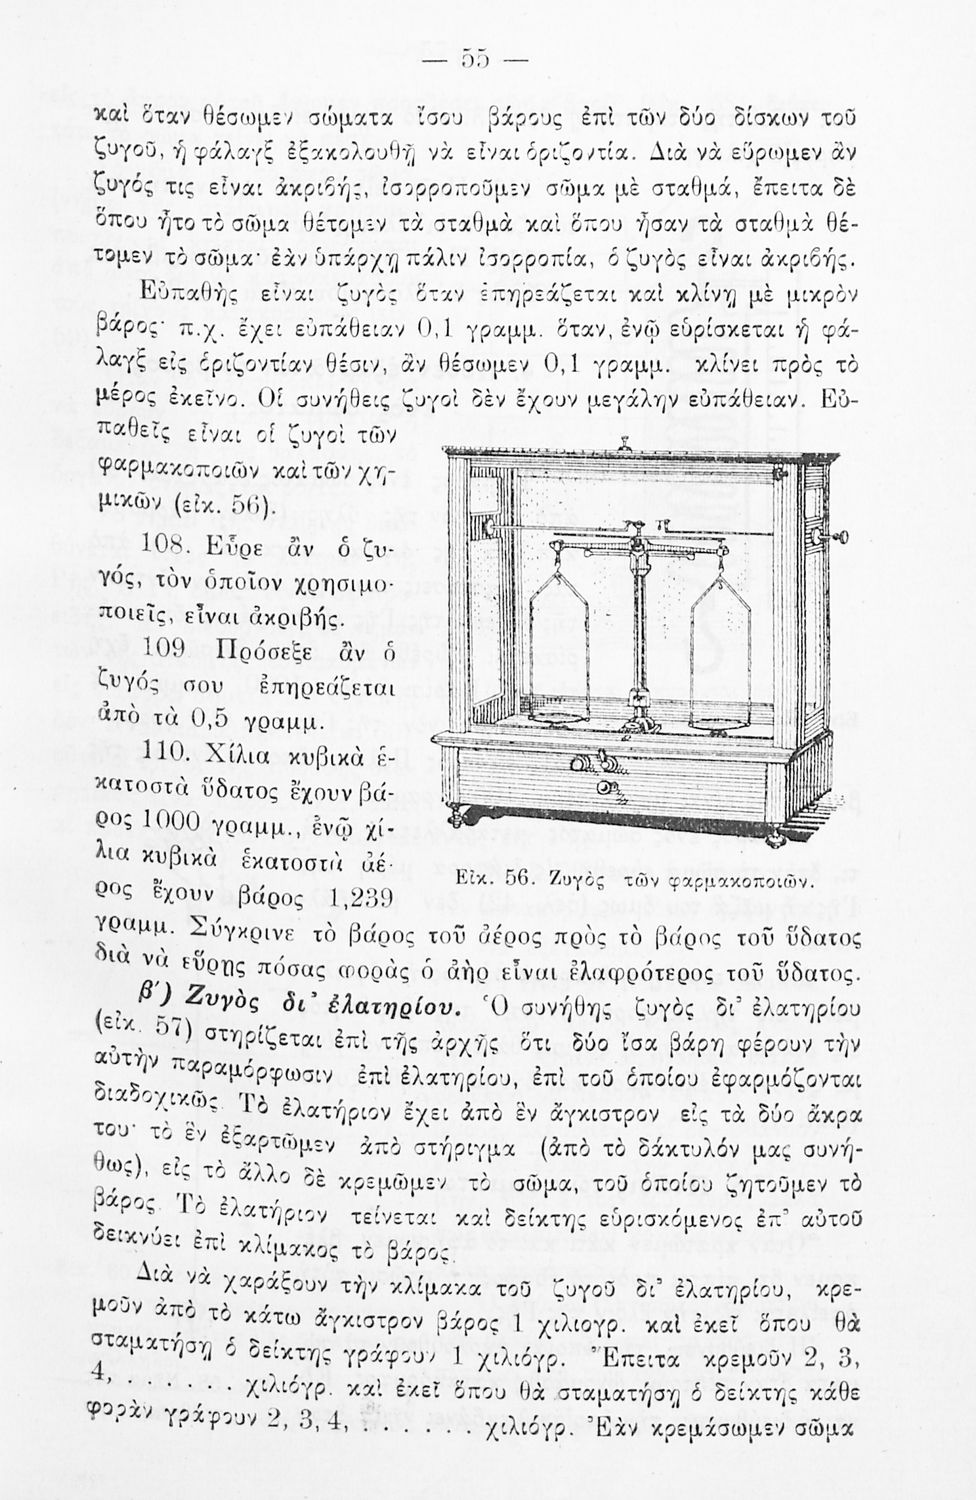 — 55 —
καὶ ὅταν θέσωμεν σώματα ἴσου βάρους ἐπὶ τῶν δύο δίσκων τοῦ
ζυγοῦ, ἡ φάλαγξ ἐξακολουθῇ νὰ εἶναι ὁριζοντία. Διὰ νὰ εὕρωμεν ἂν
ζυγός τις εἶναι ἀκριβής, ἰσορροποῦμεν σῶμα μὲ σταθμά, ἔπειτα δὲ
ὅπου ἦτο τὸ σῶμα θέτομεν τὰ σταθμὰ καὶ ὅπου ἦσαν τὰ σταθμὰ θέ-
τομεν τὸ σῶμα· ἐὰν ὑπάρχῃ πάλιν ἰσορροπία, ὁ ζυγὸς εἶναι ἀκριβής.
Εὐπαθὴς εἶναι ζυγὸς ὅταν ἐπηρεάζεται καὶ κλίνῃ μὲ μικρὸν
βάρος· π.χ. ἔχει εὐπάθειαν 0,1 γραμμ. ὅταν, ἐνῷ εὑρίσκεται ἡ φά-
λαγξ εἰς ὁριζοντίαν θέσιν, ἂν θέσωμεν 0,1 γραμμ. κλίνει πρὸς τὸ
μέρος ἐκεῖνο. Οἱ συνήθεις ζυγοὶ δὲν ἔχουν μεγάλην εὐπάθειαν. Εὐ-
παθεῖς εἶναι οἱ ζυγοὶ τῶν
φαρμακοποιῶν καὶ τῶν χη-
μικῶν (εἰκ. 56).
108. Εὗρε ἂν ὁ ζυ-
γός, τὸν ὁποῖον χρησιμο-
ποιεῖς, εἶναι ἀκριβής.
109 Πρόσεξε ἂν ὁ
ζυγός σου ἐπηρεάζεται
ἀπὸ τὰ 0,5 γραμμ.
110. Χίλια κυβικὰ ἑ-
κατοστὰ ὕδατος ἔχουν βά-
ρος 1000 γραμμ., ἐνῷ χί-
λια κυβικὰ ἑκατοστὰ ἀέ-
ρος ἔχουν βάρος 1,239
Εἰκ. 56. Ζυγὸς τῶν φαρμακοποιῶν.
γραμμ. Σύγκρινε τὸ βάρος τοῦ ἀέρος πρὸς τὸ βάρος τοῦ ὕδατος
διὰ νὰ εὕρῃς πόσας φορὰς ὁ ἀὴρ εἶναι ἐλαφρότερος τοῦ ὕδατος.
β΄) Ζυγὸς δι᾽ ἐλατηρίου. Ὁ συνήθης ζυγὸς δι᾽ ἐλατηρίου
(εἰκ. 57) στηρίζεται ἐπὶ τῆς ἀρχῆς ὅτι δύο ἴσα βάρη φέρουν τὴν
αὐτὴν παραμόρφωσιν ἐπὶ ἐλατηρίου, ἐπὶ τοῦ ὁποίου ἐφαρμόζονται
διαδοχικῶς. Τὸ ἐλατήριον ἔχει ἀπὸ ἓν ἄγκιστρον εἰς τὰ δύο ἄκρα
του· τὸ ἓν ἐξαρτῶμεν ἀπὸ στήριγμα (ἀπὸ τὸ δάκτυλόν μας συνή-
θως), εἰς τὸ ἄλλο δὲ κρεμῶμεν τὸ σῶμα, τοῦ ὁποίου ζητοῦμεν τὸ
βάρος. Τὸ ἐλατήριον τείνεται καὶ δείκτης εὑρισκόμενος ἐπ᾽ αὐτοῦ
δεικνύει ἐπὶ κλίμακος τὸ βάρος.
Διὰ νὰ χαράξουν τὴν κλίμακα τοῦ ζυγοῦ δι᾽ ἐλατηρίου, κρε-
μοῦν ἀπὸ τὸ κάτω ἄγκιστρον βάρος 1 χιλιογρ. καὶ ἐκεῖ ὅπου θὰ
σταματήσῃ ὁ δείκτης γράφουν 1 χιλιόγρ. Ἔπειτα κρεμοῦν 2, 3,
4, . . . . . . . χιλιόγρ. καὶ ἐκεῖ ὅπου θὰ σταματήσῃ ὁ δείκτης κάθε
φορὰν γράφουν 2, 3, 4, . . . . . . . χιλιόγρ. Ἐὰν κρεμάσωμεν σῶμα